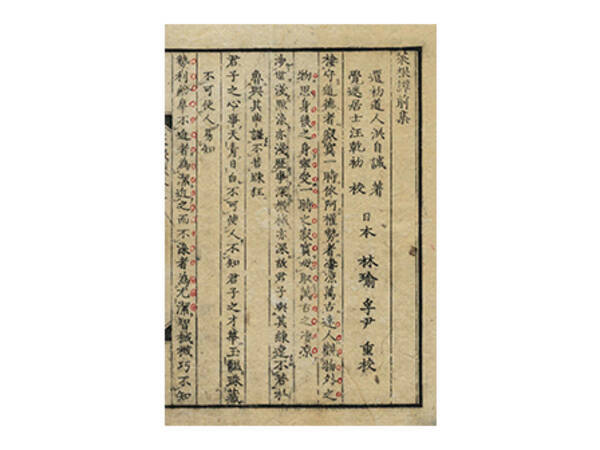 菜根譚前集
還初道人洪自誠著
覺迷居士汪乾初校
日本林瑜孚尹重校
棲守道德者寂寞一時依阿權勢者凄凉萬古達人觀物外之
物思身後之身寧受一時之寂寞毋取萬古之凄凉
涉世淺點染亦淺歷事深機械亦深故君子與其練達不若朴
魯與其曲謹不若疎狂
君子之心事天青日白不可使人不知君子之才華玉韞珠藏
不可使人易知
勢利紛華不近者為潔近之而不染者為尤潔智械機巧不知